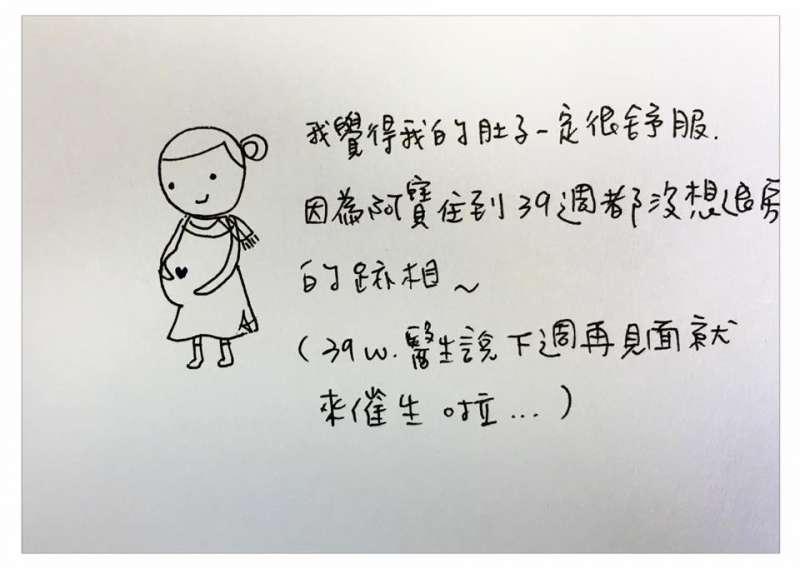 我覺得我的肚子一定很舒服.
因為阿寶住到39週都沒想退房
的跡相~
(39w.醫生說下週再見面就
來催生啦...)